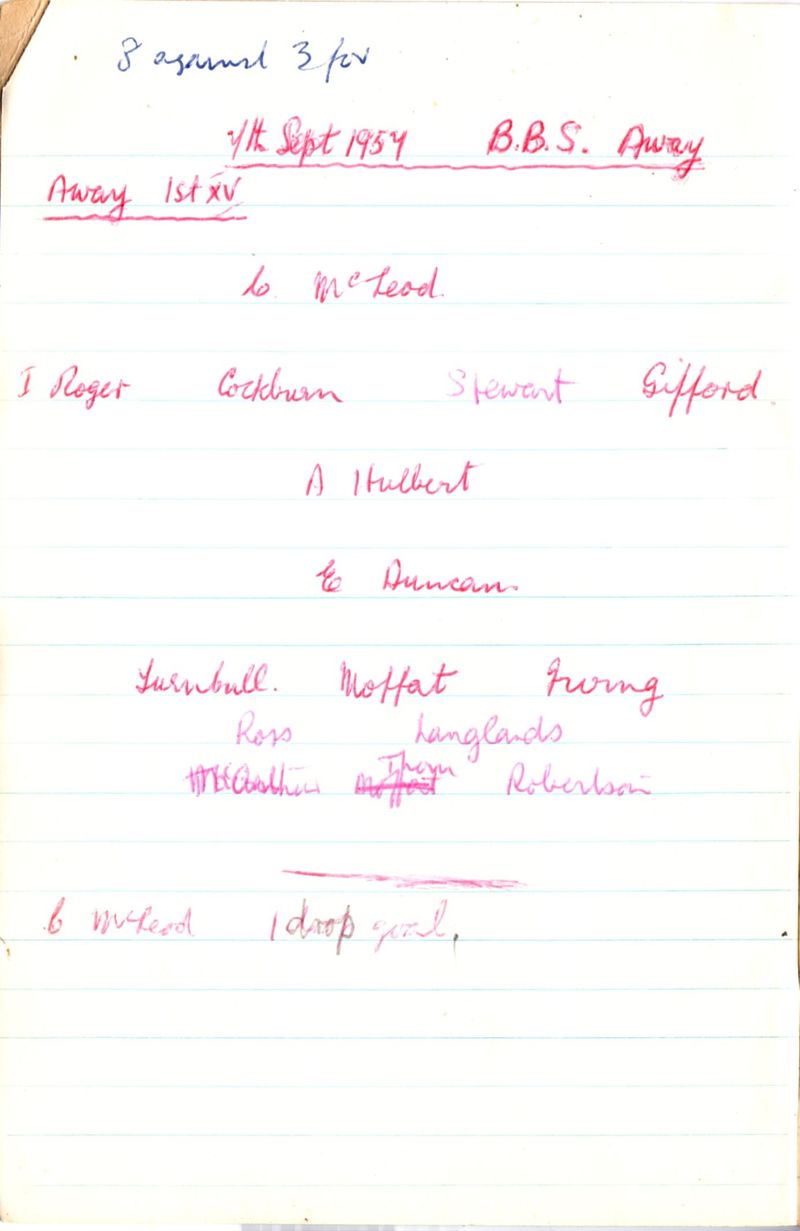 8 against 3 for
7th Sept 1957 B.B.S. Away
Away 1st XV
McLead
I Roger Cockburn Stewart Gifford
A Hulbert
E Duncan
Turnbull. Moffat Irving
Ross Langlands
Thom
Moffat Robertson
McLeod 1 drop goal,